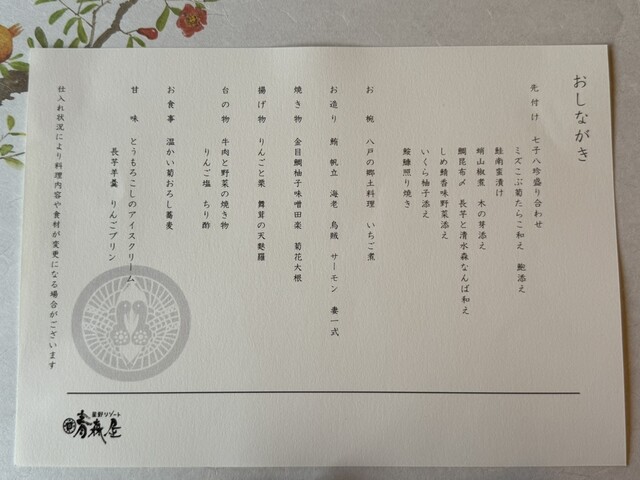 おしながき
先付け 七子八珍盛り合わせ
ミズこぶ菊たらこ和え 鮑添え
鮭南蛮漬け
蛸山椒煮 木の芽添え
鯛昆布〆 長芋と清水森なんば和え
しめ鯖香味野菜添え
いくら柚子添え
鮟鱇照り焼き
お椀 八戸の郷土料理 いちご煮
お造り 鮪 帆立 海老 烏賊 サーモン 妻一式
焼き物 金目鯛柚子味噌田楽 菊花大根
揚げ物 りんごと栗 舞茸の天麩羅
台の物 牛肉と野菜の焼き物
りんご塩 ちり酢
お食事 温かい菊おろし蕎麦
甘味 とうもろこしのアイスクリーム
長芋羊羹 りんごプリン
仕入れ状況により料理内容や食材が変更になる場合がございます
星野リゾート
青森屋